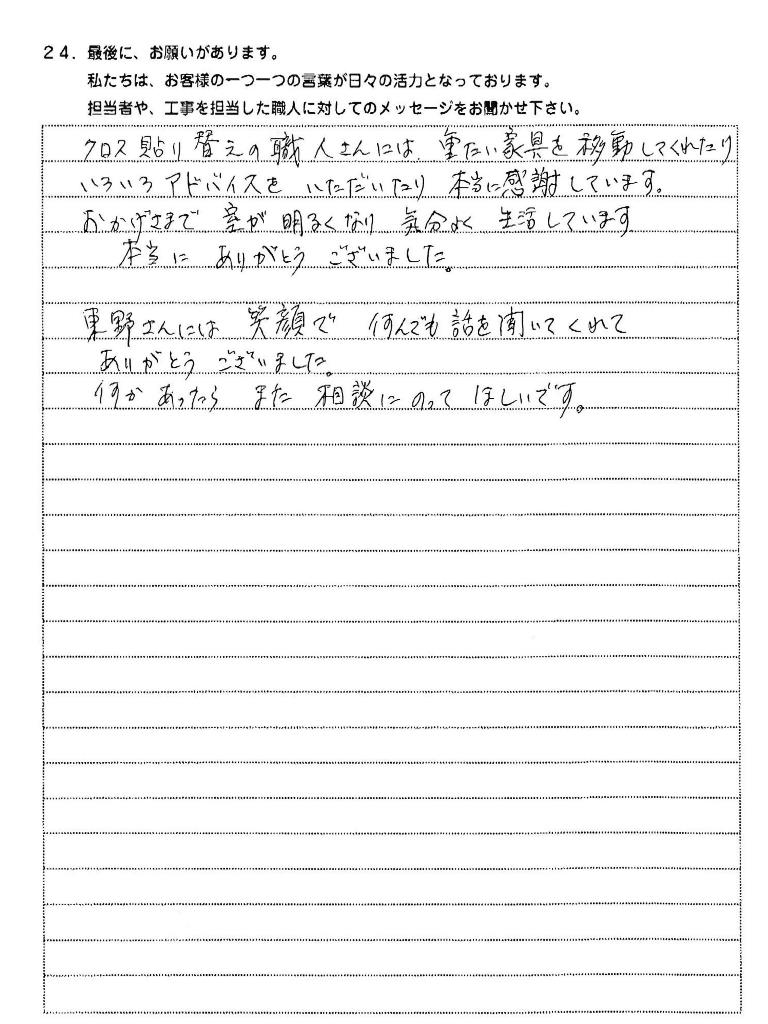 24．最後に、お願いがあります。
私たちは、お客様の一つ一つの言葉が日々の活力となっております。
担当者や、工事を担当した職人に対してのメッセージをお聞かせ下さい。
クロス貼り替えの職人さんには、重たい家具を移動してくれたり
いろいろアドバイスをいただいたり本当に感謝しています。
おかげさまで室が明るくなり気分よく生活しています
本当にありがとうございました。
東野さんには笑顔で何んでも話を聞いてくれて
ありがとうございました。
何かあったらまた相談にのってほしいです。